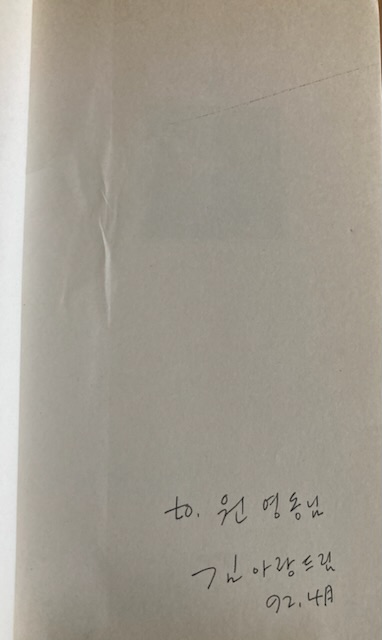 to. 원영동님
김아랑드림
92.4月